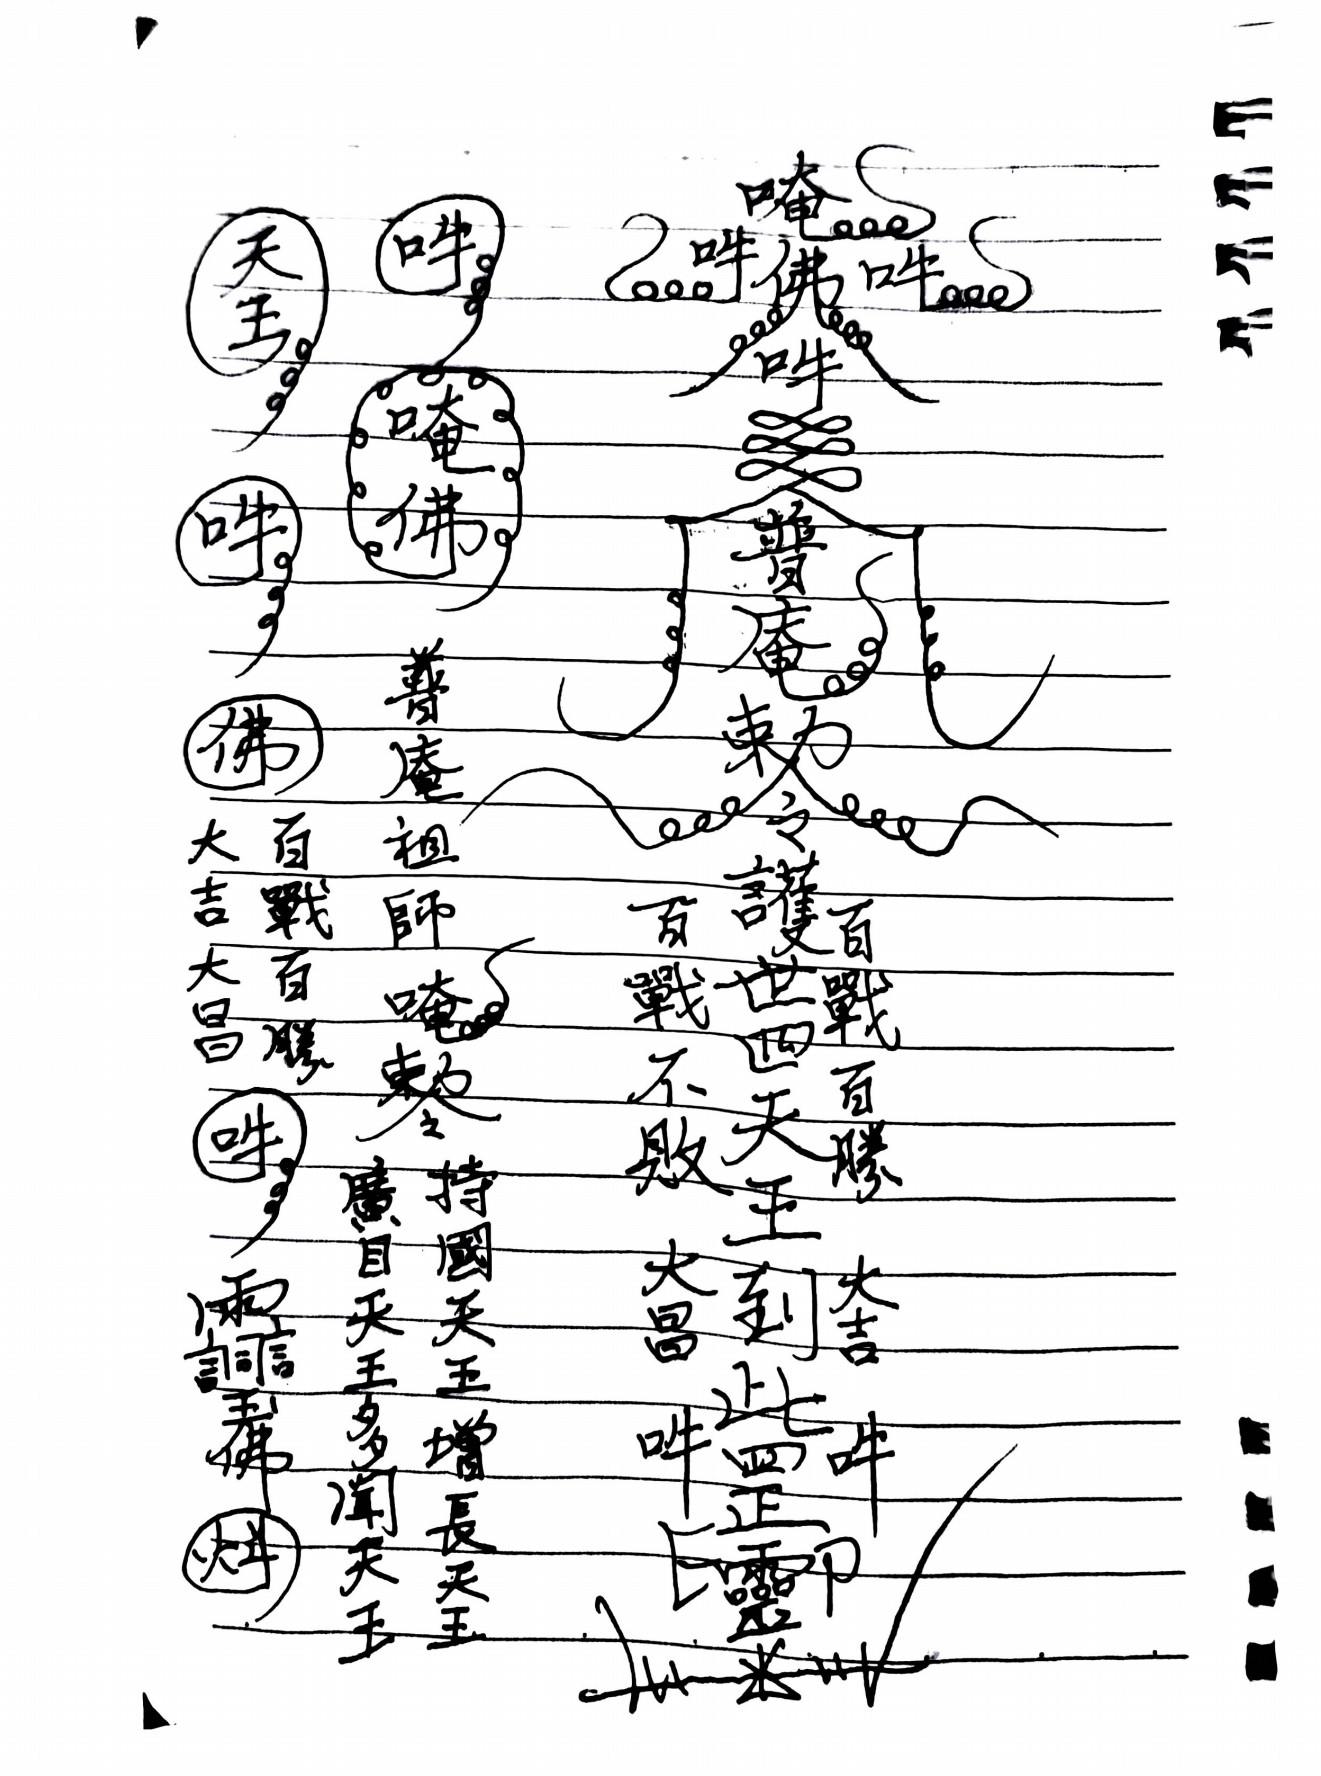 唵
吽佛吽
吽
普庵
勅令護世四天王到此罡正靈
百戰百勝
大吉
吽
百戰不敗
大昌
吽
印
吽
唵佛
普庵祖師唵勅令
持國天王增長天王
廣目天王多聞天王
天王
吽
佛
百戰百勝
大吉大昌
吽
佛